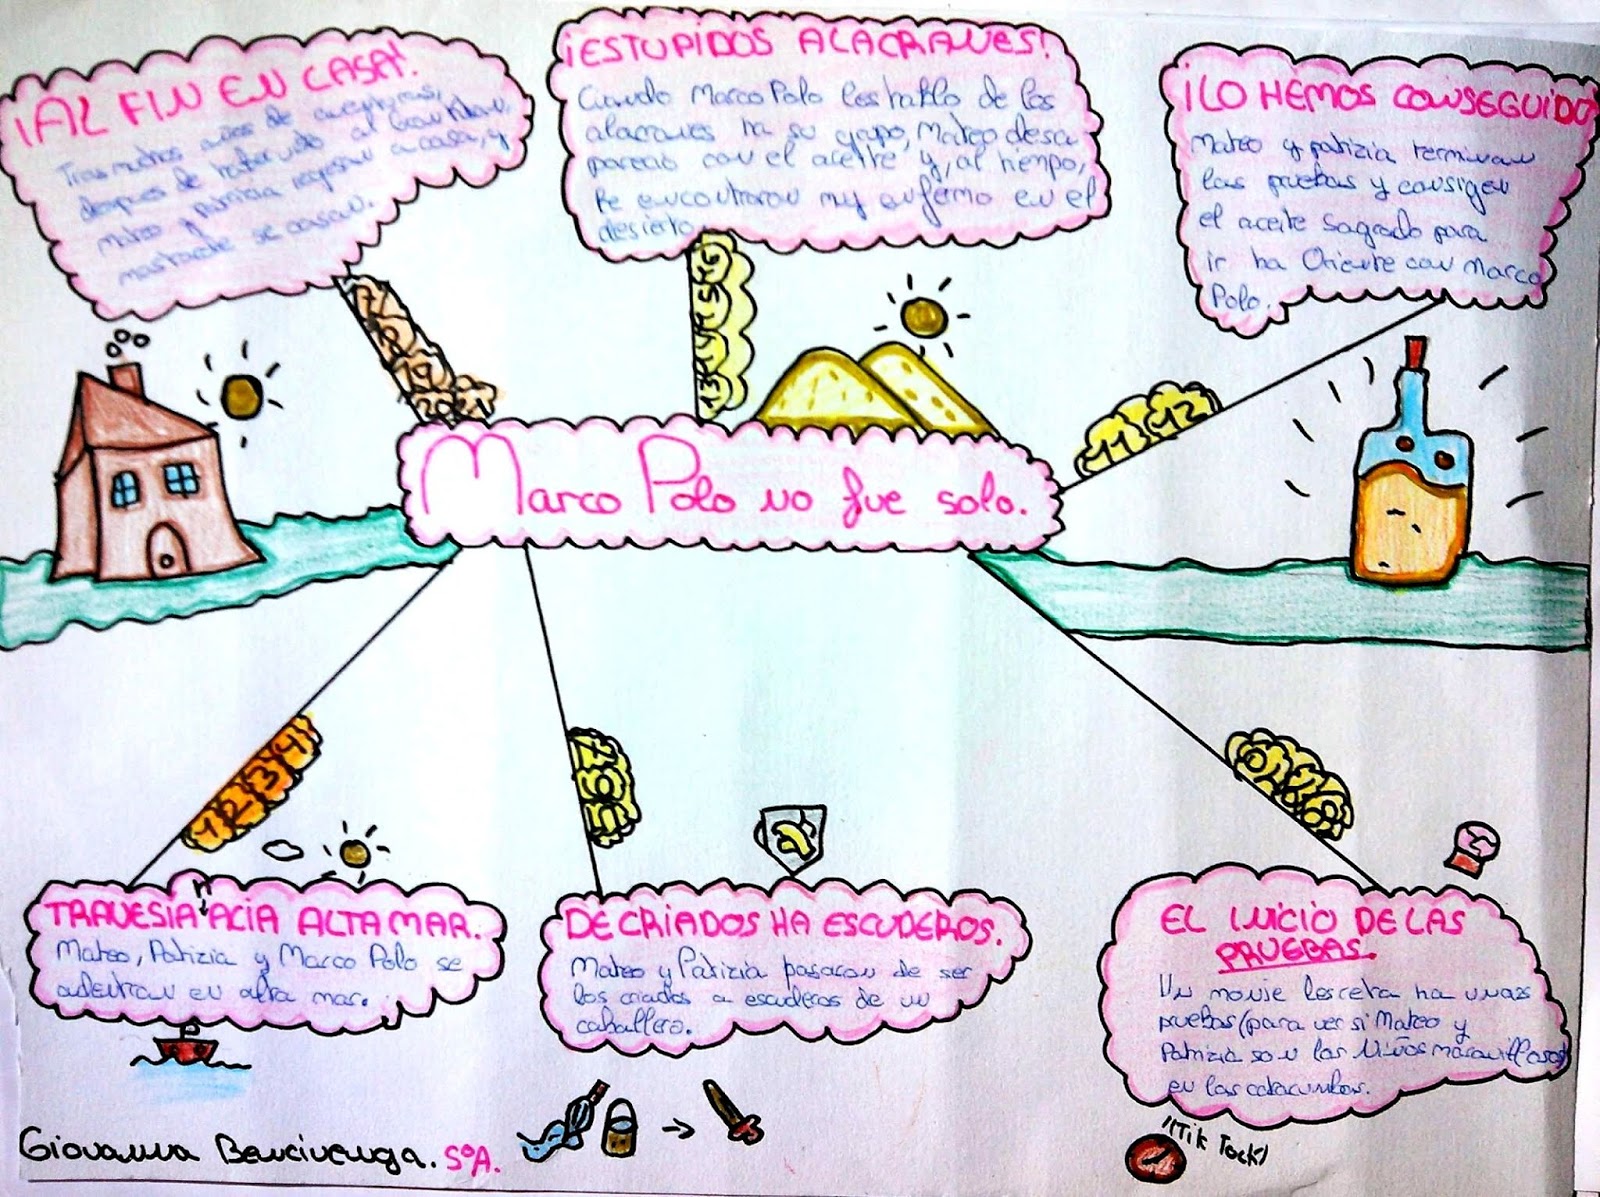 ¡AL FIN EN CASA!
Tras muchos años de aventuras,
después de haber ido al Gran Khan,
Mateo y Patrizia regresan a casa, y
mastarde se casan.
¡ESTUPIDOS ALACRANES!
Cuando Marco Polo les hablo de los
alacranes ha su grupo, Mateo desa
parecio con el aceite y, al tiempo,
le encontraron muy enfermo en el
desierto.
¡LO HEMOS CONSEGUIDO
Mateo y patrizia terminan
las pruebas y consigen
el aceite sagrado para
ir ha Oriente con Marco
Polo.
17
18
19
20 21
16
15
14
13
11 12
Marco Polo no fue solo.
1 2 3 4
7
6
5
8 9 10
TRAVESIA H ACIA ALTA MAR.
Mateo, Patrizia y Marco Polo se
adentran en alta mar.
DE CRIADOS HA ESCUDEROS.
Mateo y Patrizia pasaron de ser
los criados a escuderos de un
caballero.
EL INICIO DE LAS
PRUEBAS.
Un monje les reta ha unas
pruebas (para ver si Mateo y
Patrizia son los Niños maravillosos)
en las catacumbas.
Giovanna Bencivenga. 5ºA.
¡¡Tik Tock!